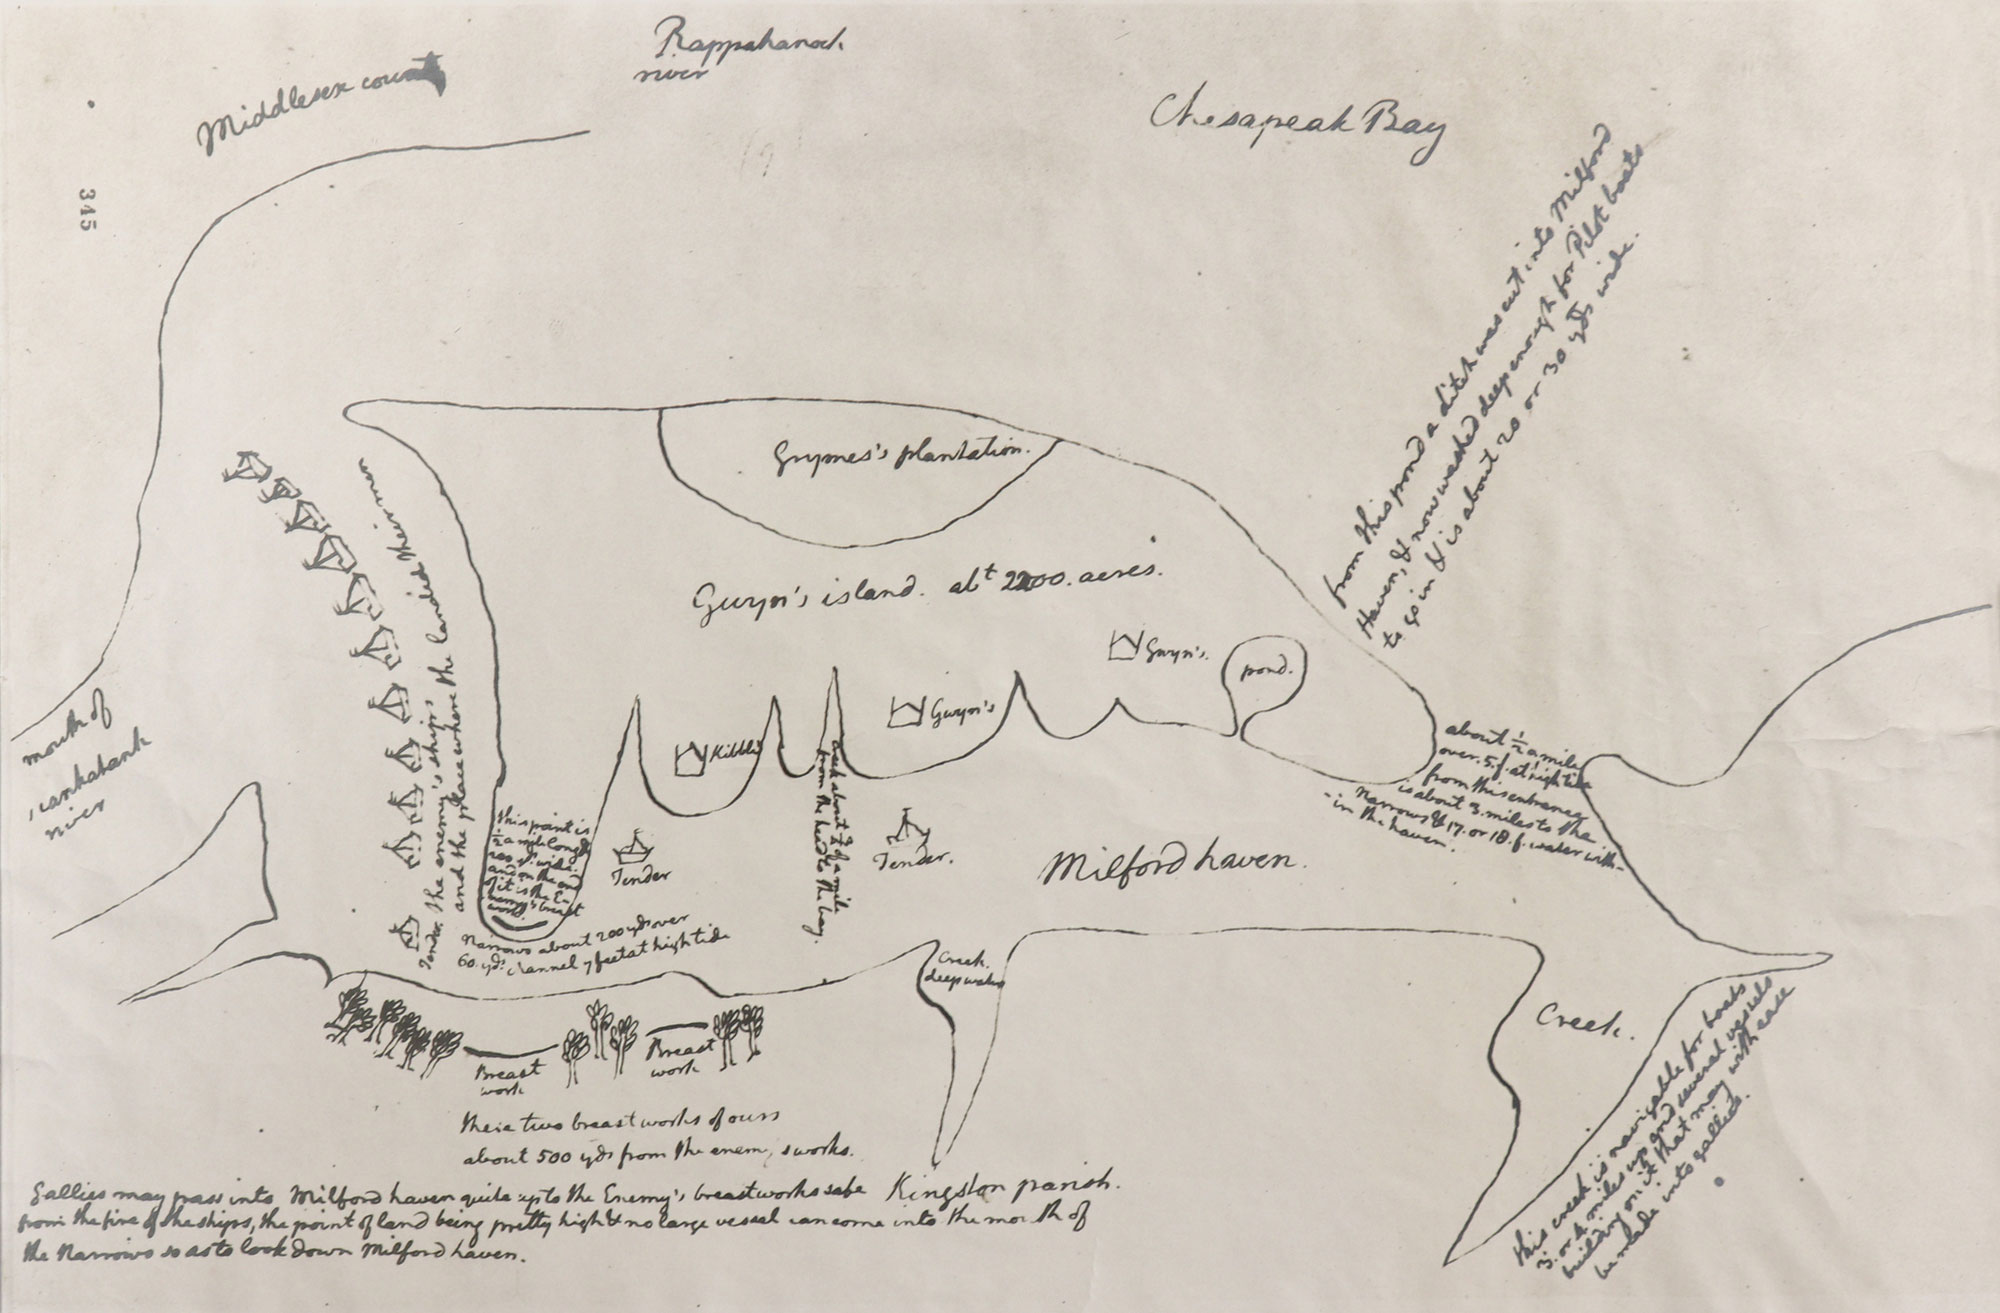 Rappahanock
river
Middlesex county
Chesapeak Bay
345
from this pond a ditch was cut into Milford
Haven, & now washed deep enough for Pilot boats
to go in & is about 20 or 30 yds wide.
Grymes's plantation.
Gwyn's island. abt 2200. acres.
Gwyn's.
pond.
Gwyn's
Kibble
mouth of
river
the enemy's ships
and the place where the landed their men
Tender
this point is
1/2 a mile long &
200 yds wide.
and on the end
of it is the E-
nemy's breast
work.
Tender
Tender.
creek about 3/4 of a mile
from the head to the bay.
Milford haven.
about 1/2 a mile
over. 5.f. at high tide
from this entrance
is about 3. miles to the
Narrows & 17. or 18. f. water with-
-in the haven.
Narrows about 200 yds over
60. yds. channel 7 feet at high tide
Creek.
deep water
Creek.
Breast
work
Breast
work
these two breast works of ours
about 500 yds from the enemy's works.
this creek is navigable for boats
3. or 4. miles up and several vessels
building on it that may with ease
be made into gallies.
Kingston parish.
Gallies may pass into Milford haven quite up to the Enemy's breastworks safe
from the fire of the ships, the point of land being pretty high & no large vessel can come into the mouth of
the Narrows so as to look down Milford haven.